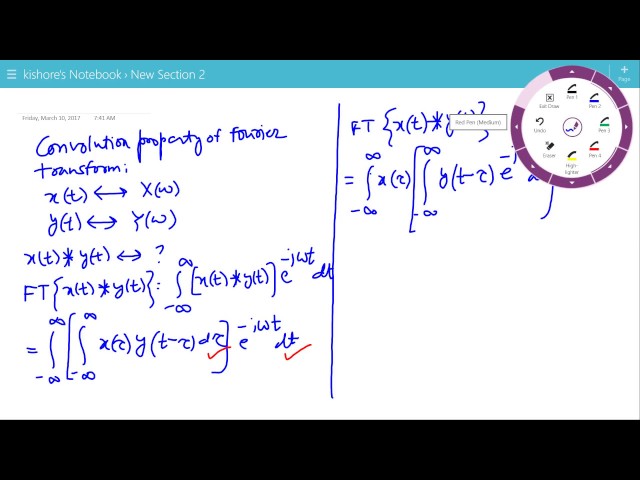 kishore's Notebook › New Section 2
Page
Friday, March 10, 2017 7:41 AM
Convolution property of fourier
transform:
x(t) ⟷ X(ω)
y(t) ⟷ Y(ω)
x(t) * y(t) ⟷ ?
FT{x(t) * y(t)} : ∫_{-∞}^{∞} [x(t) * y(t)] e^{-jωt} dt
= ∫_{-∞}^{∞} [∫_{-∞}^{∞} x(τ) y(t-τ) dτ] e^{-jωt} dt
FT {x(t) * y(t)}
= ∫_{-∞}^{∞} x(τ) [∫_{-∞}^{∞} y(t-τ) e^{-j
Red Pen (Medium)
Exit Draw
Pen 1
Pen 2
Pen 3
Pen 4
High-
lighter
Eraser
Undo